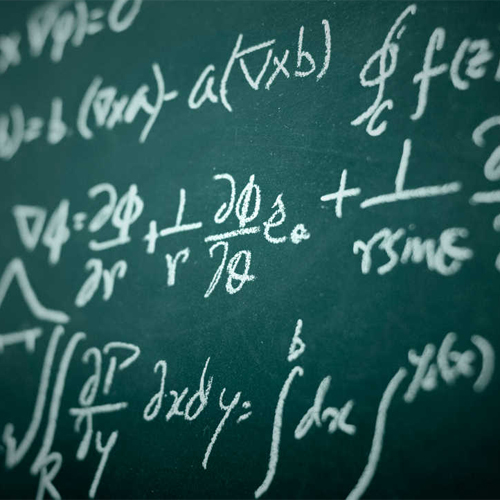 x ∇φ)=0
)=b.(∇xa)-a(∇xb) ∮c f(z
∇ϕ=∂ϕ/∂r+1/r ∂ϕ/∂θ ê+1/rsinθ ∂
∬R ∂P/∂y ∂xdy=∫b dx ∫y₂(x)